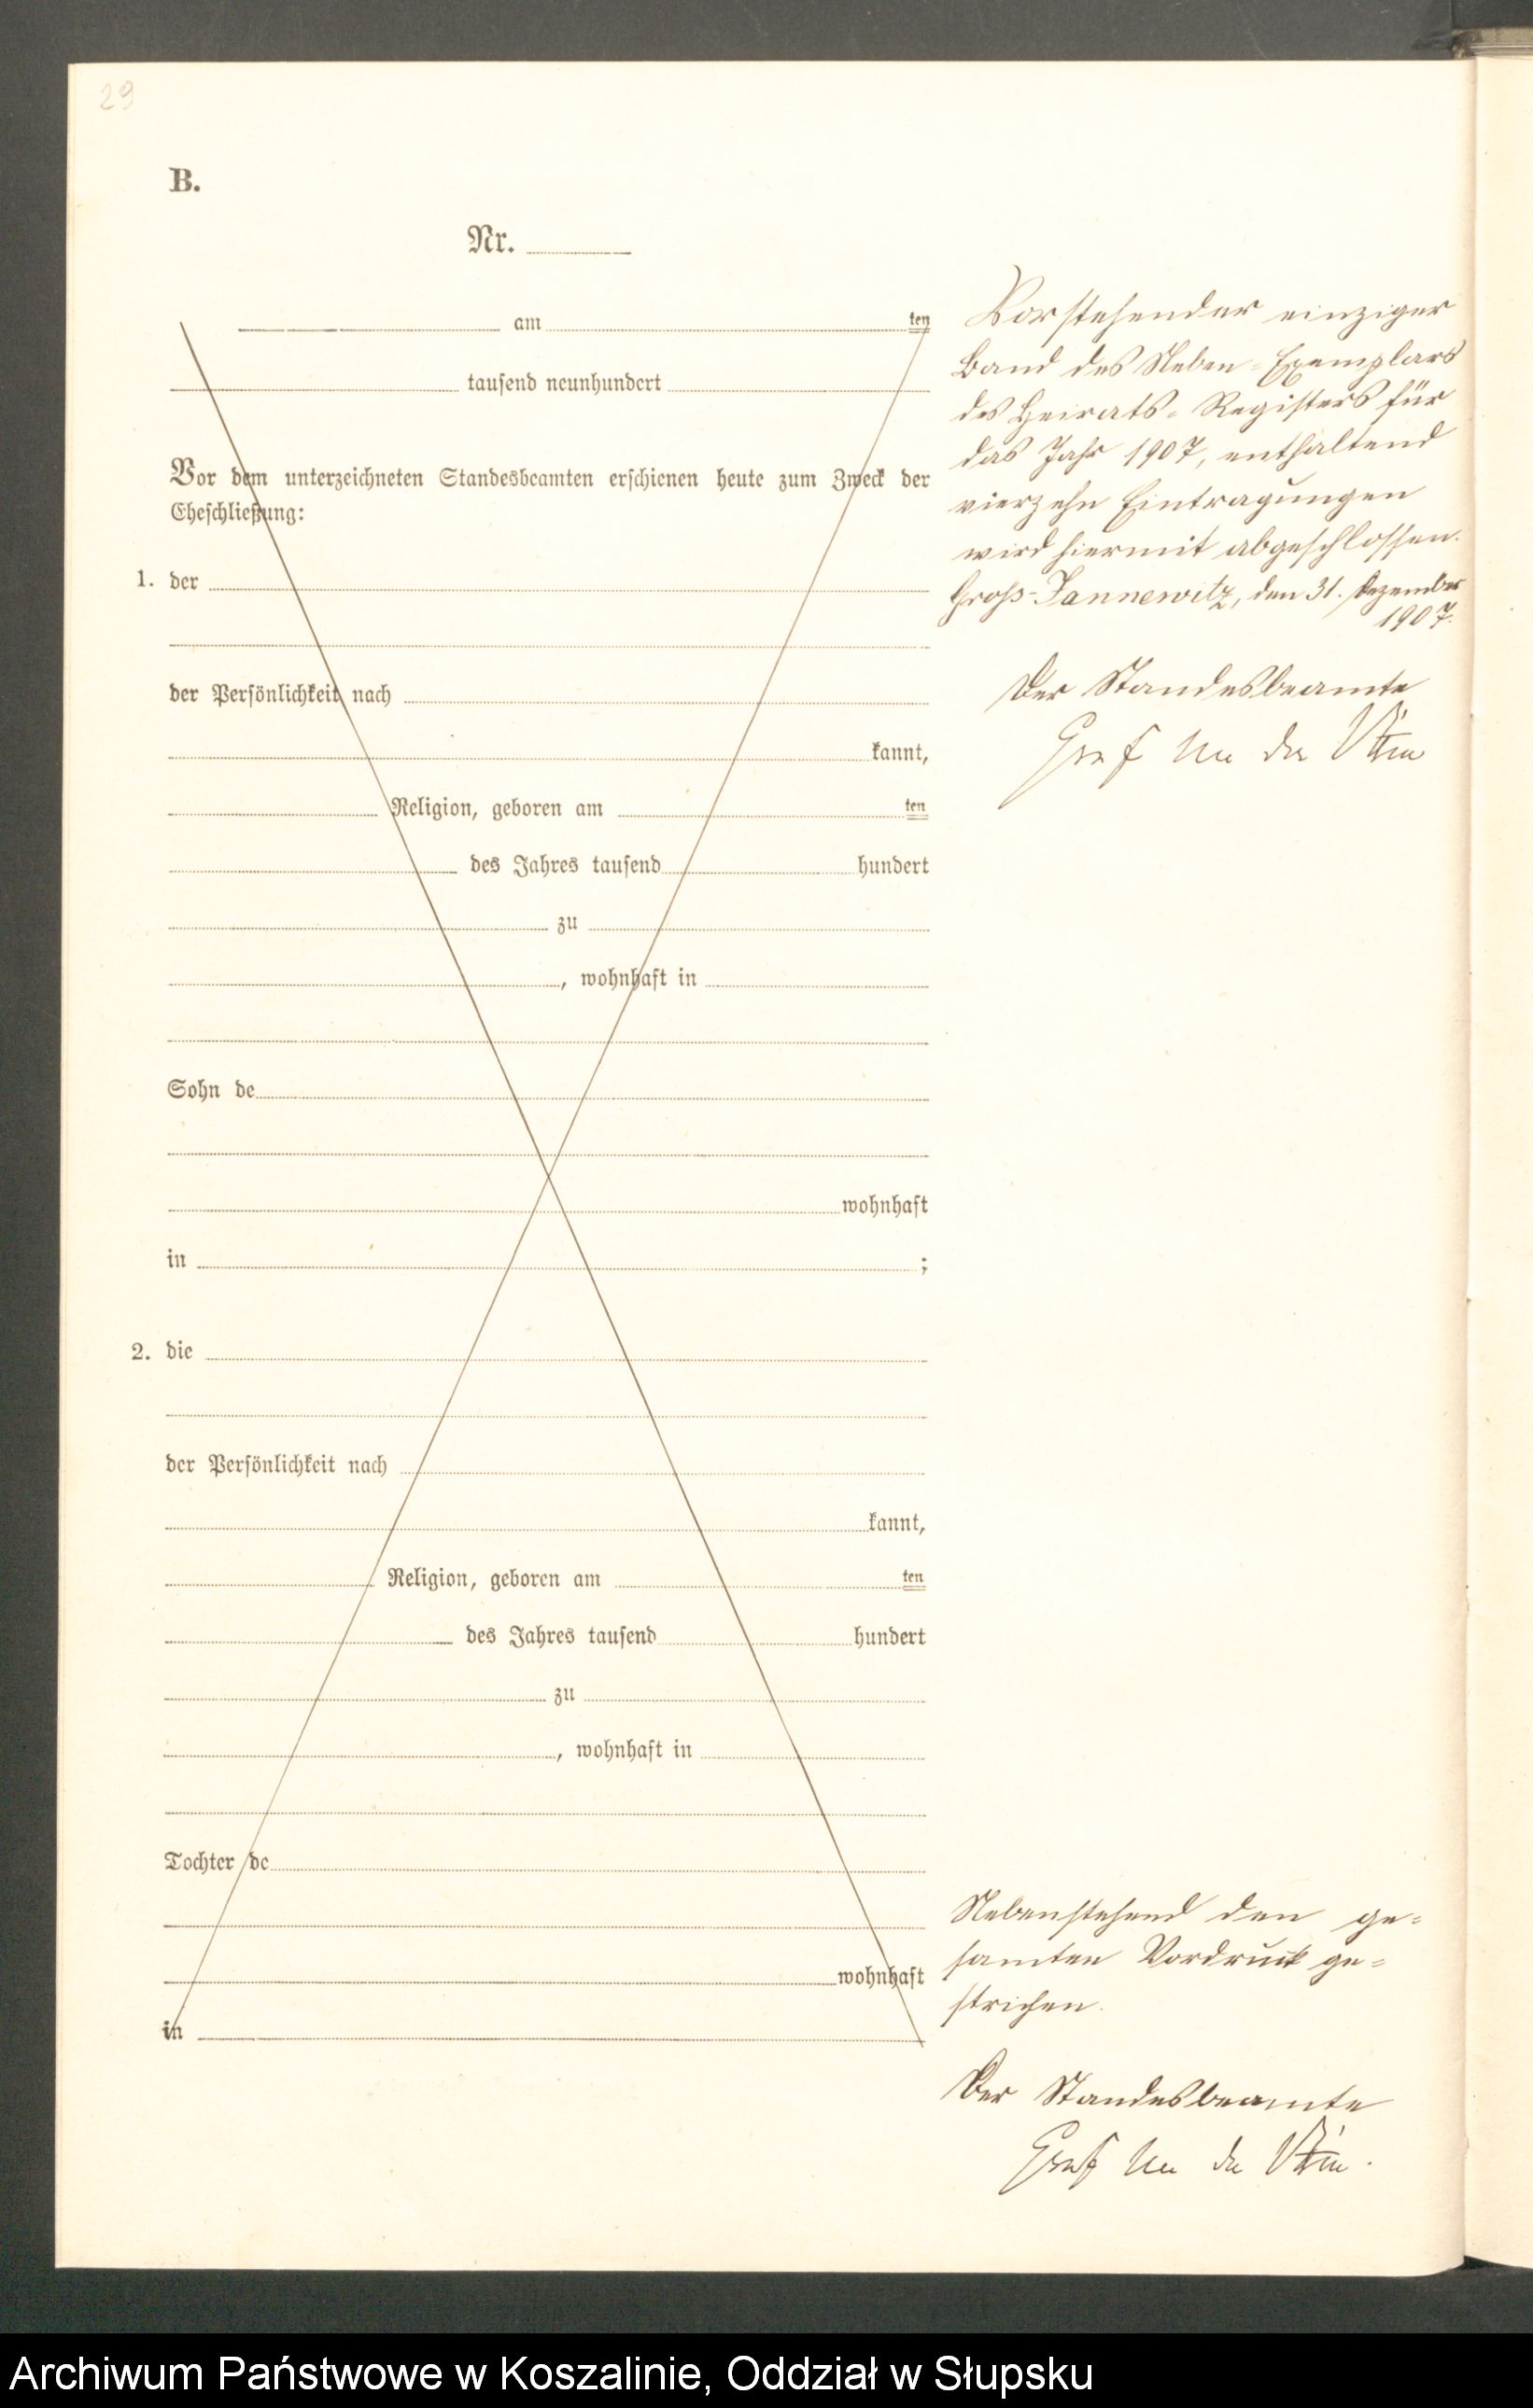 29
B.
Nr.
am ten
tausend neunhundert
Vor dem unterzeichneten Standesbeamten erschienen heute zum Zweck der
Eheschließung:
1. der
der Persönlichkeit nach
kannt,
Religion, geboren am ten
des Jahres tausend hundert
zu
, wohnhaft in
Sohn de
wohnhaft
in ;
2. die
der Persönlichkeit nach
kannt,
Religion, geboren am ten
des Jahres tausend hundert
zu
, wohnhaft in
Tochter de
wohnhaft
in
Vorstehender einziger
Band des Neben-Exemplars
des Heirats-Registers für
das Jahr 1907, enthaltend
vierzehn Eintragungen
wird hiermit abgeschlossen.
Groß-Jannewitz, den 31. Dezember
1907.
Der Standesbeamte
Graf von der
Nebenstehend den ge=
samten Vordruck ge=
strichen.
Der Standesbeamte
Graf von der
Archiwum Państwowe w Koszalinie, Oddział w Słupsku